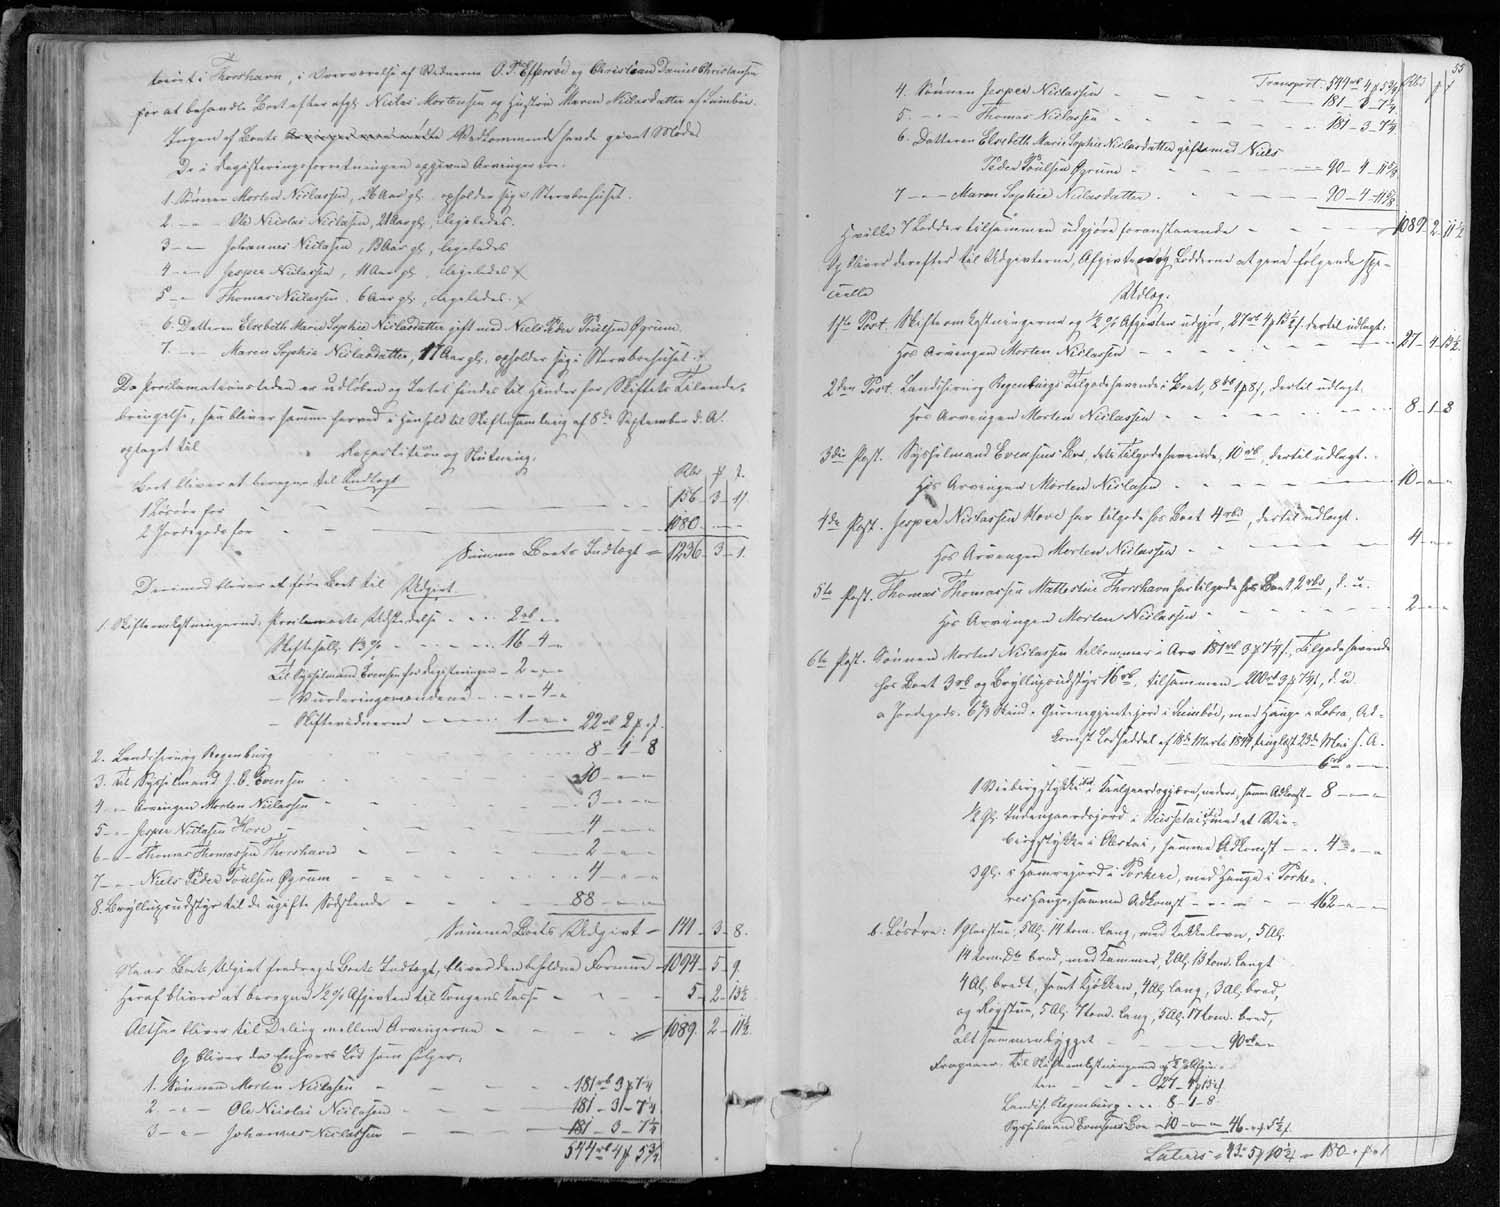 toriet i Thorshavn, i Overværelse af Vidnerne O. P. Effersøe og Christian Daniel Christiansen
for at behandle Boet efter afgl. Niclas Mortensen og Hustru Maren Niclasdatter af Sumbø.
Ingen af Boets Vedkommende havde givet Møde.
De i Registeringsforretningen opgivne Arvinger ere:
1. Sønnen Morten Niclassen, 26 Aar gl. opholder sig i Stervboehuset.
2. -"- Ole Nicolai Niclassen, 21 Aar gl., ligeledes.
3 -"- Johannes Niclasen, 13 Aar gl, ligeledes
4 -"- Jesper Niclassen, 11 Aar gl., ligeledes
5 -"- Thomas Niclassen, 6 Aar gl., ligeledes.
6. Datteren Elsebeth Marie Sophie Niclasdatter gift med Niels Peder Poulsen Øgrum.
7. -"- Maren Sophie Niclasdatter, 17 Aar gl., opholder sig i Stervboehuset.
Da Proclamationstiden er udløben og Intet findes til Hinder for Skiftets Tilende-
bringelse, saa bliver samme herved i Henhold til Skiftesamling af 8de September d. A.
optaget til Repartition og Slutning.
Boet bliver at beregne til Indtægt
Rbd ß
1 Løsøre for 156 - 3 - 11
2 Jordegods for 1080 - - -
Summa Boets Indtægt = 1236 - 3 - 1.
Derimod bliver at føre Boet til Udgivt
1. Skifteomkostningerne: Proclamaets Udstedelse - - - 2 rb - -
Skiftesalt 1 3% - - - 16 - 4 - "
til Sysselmand Evensen for Registeringen - 2 - " - "
- Vurderingsmændene - - " - 4 - "
- Skiftevidnerne - - - 1 - " - " 22 rb 2 ß " f.
2. Landchirurg Regenburg 8 - 1 - 8
3. til Sysselmand J. E. Evensen 10 - " - "
4 - " - Arvingen Morten Niclassen 3 - " - "
5 - " - Jesper Niclasen Hove 4 - " - "
6 - " - Thomas Thomassen Thorshavn 2 - " - "
7 - " - Niels Peder Poulsen Øgrum 4 - " - "
8. Bryllupsudstyr til de ugifte Sødskende 88 - " - "
Summa Boets Udgivt - 141 - 3 - 8.
Naar Boets Udgivt fradrages Boets Indtægt, bliver den beholdne Formue 1094 - 5 - 9.
Heraf bliver at beregne 1/2 % Afgivten til Kongens Kasse 5 - 2 - 13 1/2
Altsaa bliver til Deling mellem Arvingerne 1089 - 2 - 11 1/2.
Og bliver da Enhvers Lod som følger:
1. Sønnen Morten Niclasen - 181 rb 3 ß 7 1/4
2. - " - Ole Nicolai Niclasen - 181 - 3 - 7 1/4
3 - " - Johannes Niclassen - 181 - 3 - 7 1/4
544 rb 4 ß 5 3/4
55
Transport. 544 rb 4 ß 5 3/4 Rbd ß f
4. Sønnen Jesper Niclassen 181 - 3 - 7 1/4
5. - " - Thomas Niclassen 181 - 3 - 7 1/4
6. Datteren Elsebeth Marie Sophie Niclasdatter gift med Niels
Peder Poulsen Øgrum 90 - 4 - 11 5/8
7 - " - Maren Sophie Niclasdatter 90 - 4 - 11 5/8
Hvilke 7 Lodder tilsammen udgjøre foranstaaende 1089 - 2 - 11 1/2
Og bliver derefter til Udgivterne, Afgivten og Lodderne at gøre følgende spe-
cielle Udlæg.
1ste Post. Skifteomkostningerne og 1/2 % Afgivten udgjør, 27 rb 4 ß 13 1/2 f. dertil udlagt:
hos Arvingen Morten Niclassen 27 - 4 - 13 1/2.
2den Post. Landchirurg Regenburgs Tilgodehavende i Boet, 8 rb 1 ß 8 f, dertil udlagt,
hos Arvingen Morten Niclassen 8 - 1 - 8
3die Post. Sysselmand Evensens Boe, dets Tilgodehavende, 10 rb, dertil udlagt.
hos Arvingen Morten Niclasen 10 - " - "
4de Post. Jesper Niclassen Hove har tilgode hos Boet 4 rbd, dertil udlagt.
hos Arvingen Morten Niclassen 4 - " - "
5te Post. Thomas Thomassen Thorshavn har tilgode hos Boet 2 rbd, d. u.
hos Arvingen Morten Niclassen 2 - " - "
6te Post. Sønnen Morten Niclassen tilkommer i Arv 181 rb 3 ß 7 1/4 f., Tilgodehavende
hos Boet 3 rb og Bryllupsudstyr 16 rb, tilsammen 200 rb 3 ß 7 1/4 f, d. u.
a Jordegods. i Sumbø, med Hauge i Lobra, Ad-
komst Lodseddel af 18de Marts 1844, tinglæst 23de Mai s. A.
6 rb " - "
samme Adkomst - 8 - " - "
samme Adkomst - - 4 - " - "
3 Gl. i Porkere, med Hauge i Porke-
res Hauge, samme Adkomst - - - 162 - " - "
b. Løsøre: 1 Glasstue, 5 Al. 14 Tom. lang, med Kakkelovn, 5 Al.
14 Tom. bred, med Kammer, 2 Al. 13 Tom. langt
4 Al. bredt, samt Kjøkken, 4 Al. lang, 3 Al. bred,
og Røgstue, 5 Al. 7 Tom. lang, 5 Al. 17 Tom. bred,
alt sammenbygget 90 rb " "
Fragaaer: til Skifteomkostningerne og 1/2 % Afgiv-
ten - - - 27 - 4 ß 13 1/2 f.
Landch. Regenburg - - 8 - 1 - 8.
Sysselmand Evensens Boe - 10 - " - " 46 - " ß 5 1/2 f.
Lateris = 43 - 5 ß 10 1/2 = 180 - " ß " f